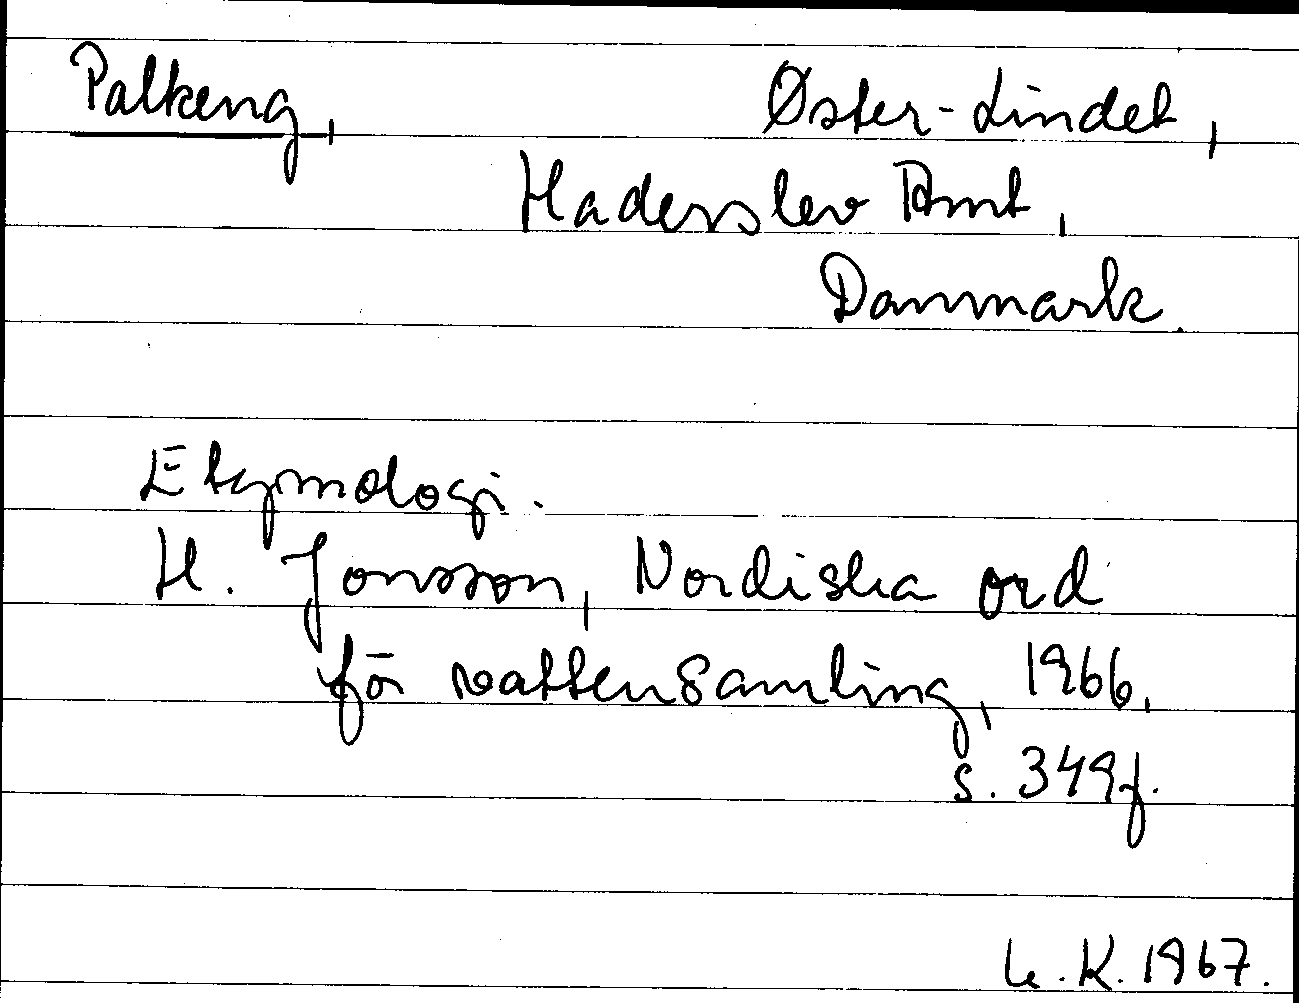 Palkeng, Øster-Lindet,
Haderslev Amt,
Danmark.
Etymologi.
H. Jonsson, Nordiska ord
för vattensamling, 1966,
s. 349f.
K. 1967.